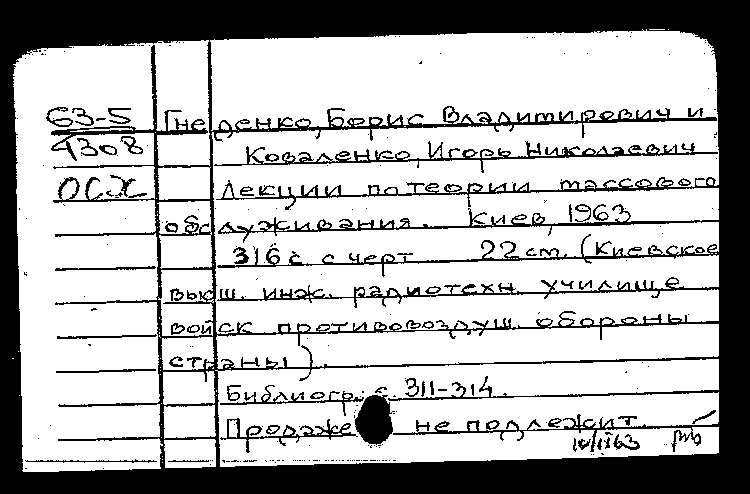 63-5 Гнеденко, Борис Владимирович и
4308 Коваленко, Игорь Николаевич
ОСХ Лекции по теории массового
обслуживания. Киев, 1963
316 с. с черт 22 см. (Киевское
высш. инж. радиотехн. училище
войск противовоздуш. обороны
страны).
Библиогр.: с. 311-314.
Продаже не подлежит.